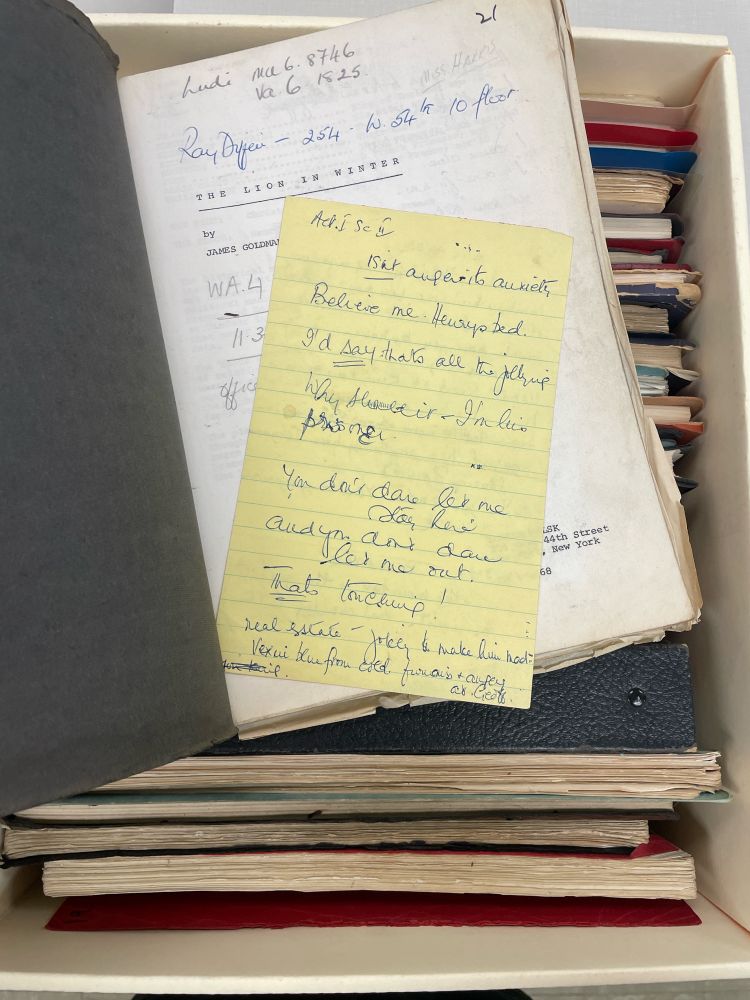 21
Ludi Ma 6. 8746
Va 6 1825
Miss Harris
Ray Diffen - 254 - W. 54th 10 floor
THE LION IN WINTER
by
JAMES GOLDMA
WA.4
11.3
office
LSK
44th Street
, New York
68
Act. I Sc II
Isnt anger its anxiety
Believe me. Henrys bed.
I'd say thats all the jollying
Why should it - I'm his
prisoner.
You don't dare let me
stay here
and you dont dare
let me out.
Thats touching!
real estate - jokey to make him mad
Vexin blue from cold furious + angry
at Geoff.